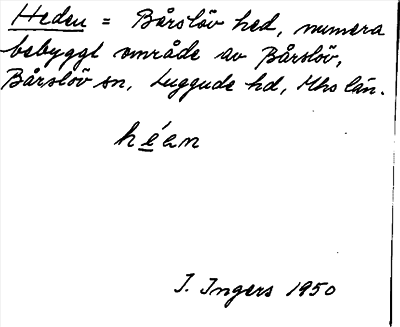 Heden = Bårslöv hed, numera
bebyggt område av Bårslöv,
Bårslöv sn, Luggude hd, Mhs län.
héan
I. Ingers 1950